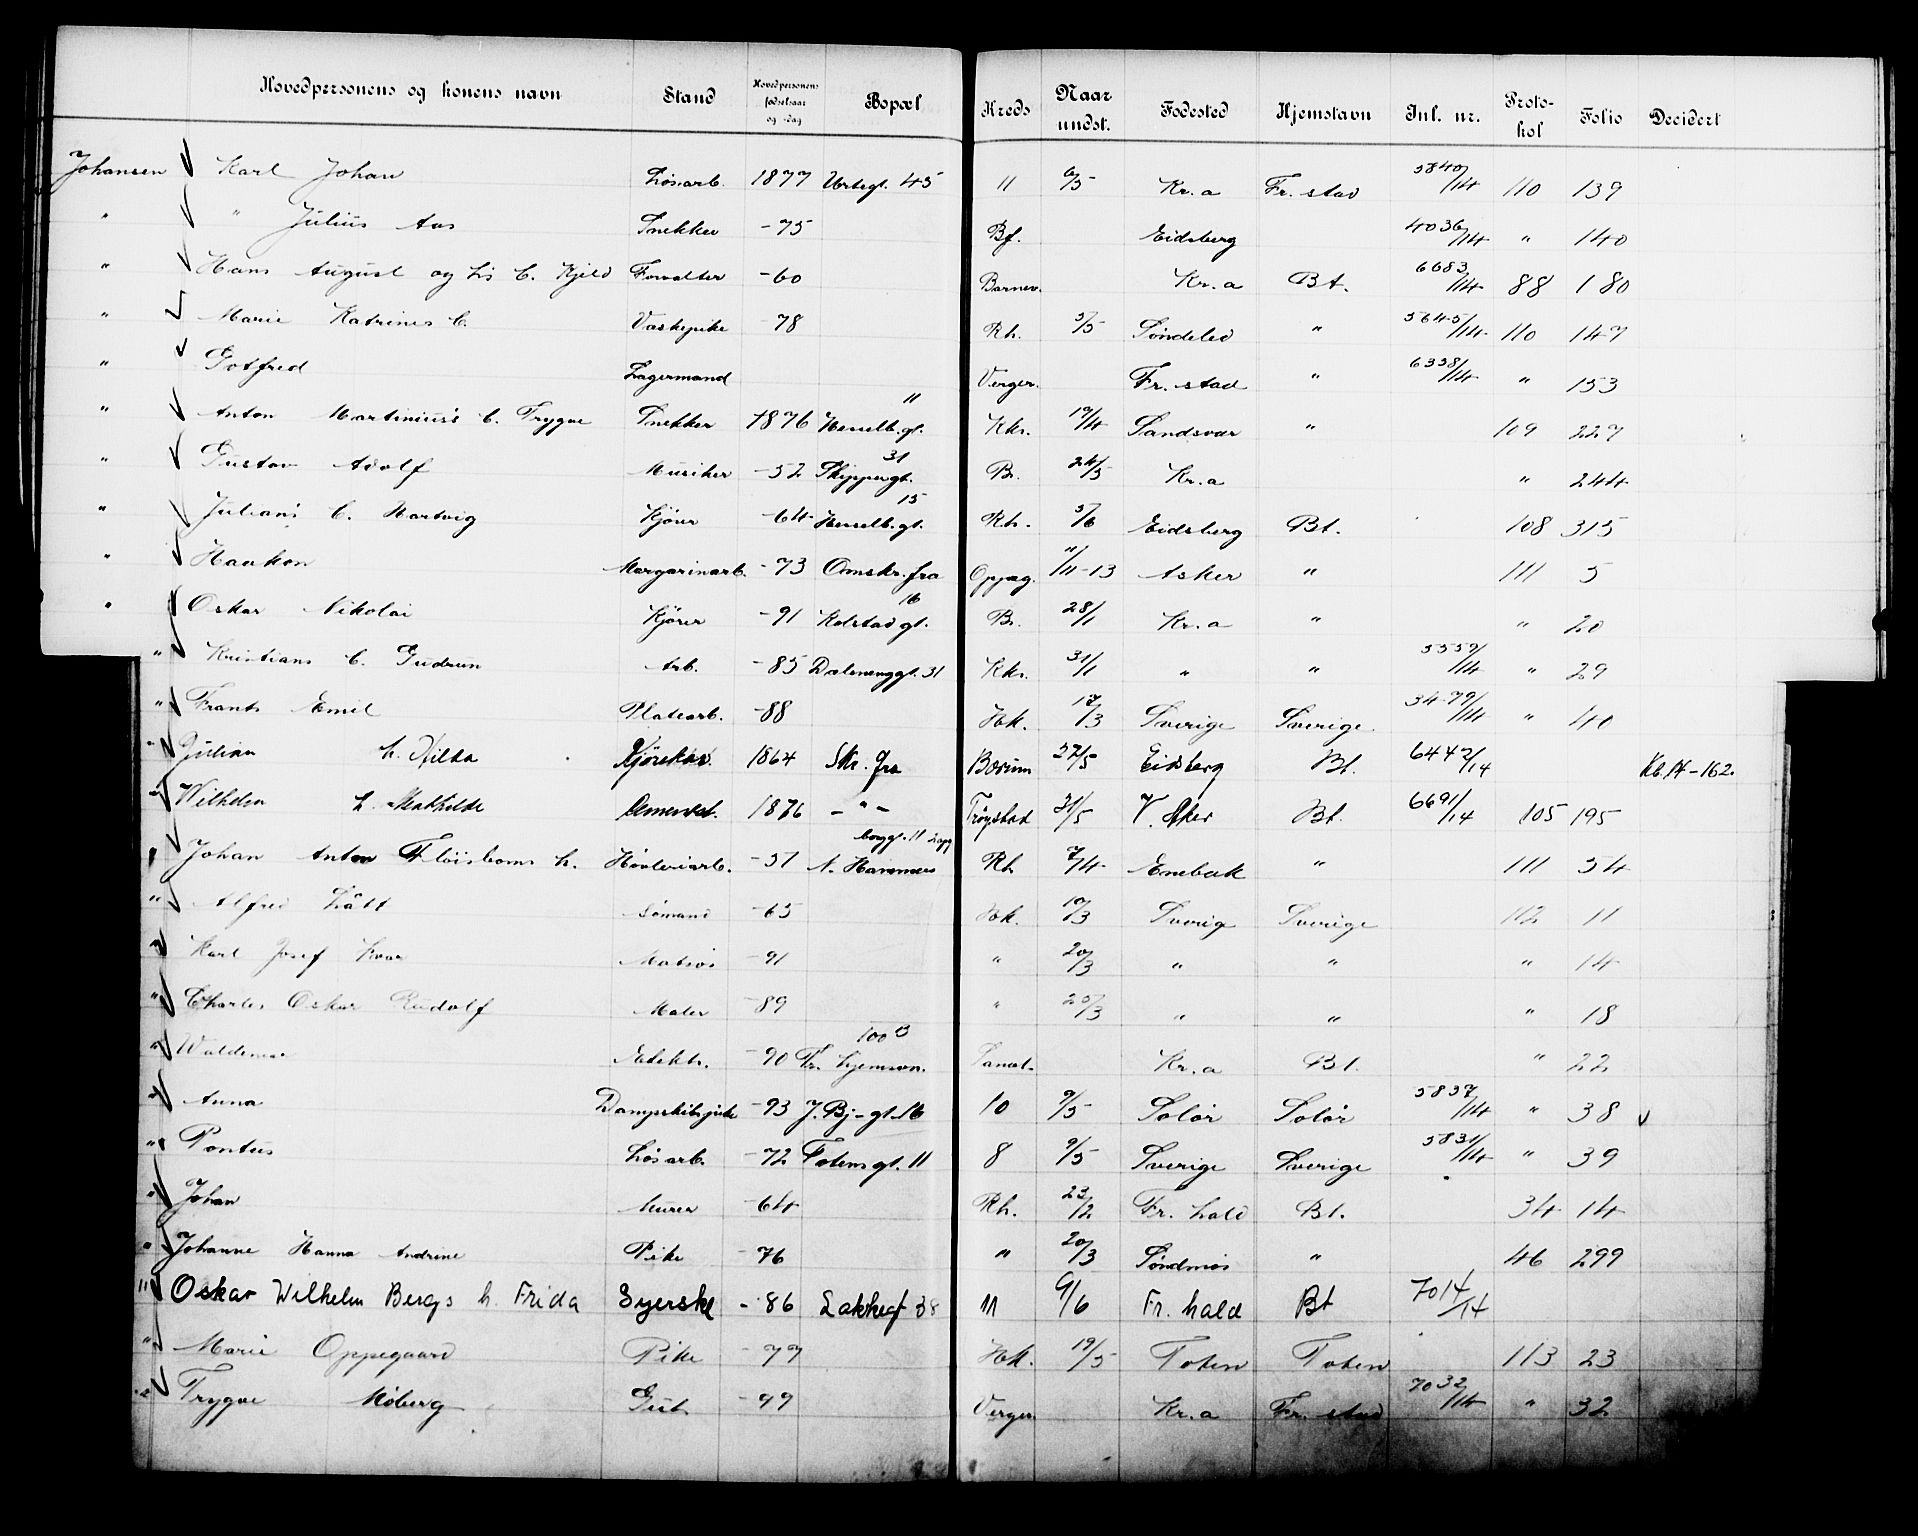 Hovedpersonens og konens navn Stand Hovedpersonens fødselsaar og -dag Bopæl Kreds Naar undst. Fødested Hjemstavn Inl. nr. Proto-kol Folio Decidert
Johansen Karl Johan Løsarb. 1877 Urtegt. 45 11 6/5 Kr.a Fr. stad 5840/14 110 139
" " Julius Aas Snekker -75 Bf. Eidsberg 4036/14 " 140
" Hans August og Lis C. Kjeld Forvalter -60 Barnev. Kr.a Bt. 6683/14 88 180
" Marie Katrines C. Vaskepike -78 Rh. 5/5 Søndeled " 5645/14 110 147
" Gotfred Lagermand Verger. Fr. stad " 6338/14 " 153
" Anton Martinius's C. Trygve Snekker 1876 Hesselb.gt. 11 Kkr. 19/4 Sandsvær " 109 227
" Gustav Adolf Musiker -52 Skippergt. 31 Br. 24/5 Kr.a " 244
" Julian's C. Hartvig Kjører -64 Hesselb.gt. 15 Rh. 5/6 Eidsberg Bt. 108 315
" Haakon Margarinarb. -73 Omskr. fra Oppeg. 11/11-13 Asker " 111 5
" Oskar Nikolai Kjører -91 Kolstadgt. 16 Br. 28/1 Kr.a " " 20
" Kristians C. Gudrun Arb. -85 Dælenenggt. 31 Kkr. 31/1 " " 5559/14 " 29
" Frants Emil Platearb. -88 Hk. 17/3 Sverige Sverige 3479/14 " 40
" Julian h. Hilda Kjørekar. 1864 Skr. fra Bærum 27/5 Eidsberg Bt. 6442/14 Kb.14-162.
" Wilhelm h. Mathilde 1876 - " - Trøgstad 31/5 V. Aker Bt. 6691/14 105 195
" Johan Anton Fløisboms h. Høvleriarb. -57 N. Hammers borggt. 11 2 opg Rh 7/4 Enebak " 111 54
" Alfred Lätt Sømand -65 Hk. 17/3 Sverig Sverige 112 11
" Karl Josef Matros -91 " 20/3 " " " 14
" Charles Oskar Rudolf Maler -89 " 25/3 " " " 18
" Waldemar Elektr. -90 Tr. hjemsvn. 100 B Sanat. Kr.a Bt. " 22
" Anna Dampskibspike -93 J. Bj-gt. 16 10 9/5 Solør Solør 5837/14 " 38
" Pontus Løsarb. -72 Totensgt. 11 8 9/5 Sverige Sverige 5831/14 " 39
" Johan Murer -64 Rh. 23/2 Fr. hald Bt. 34 14
" Johanne Hanna Andrine Pike -76 " 20/3 Søndmør " 46 299
" Oskar Wilhelm Bergs h. Frida Syerske - 86 Lakkegt 38 11 9/6 Fr. hald Bt 7014/14
" Marie Oppegaard Pike -77 Hk. 19/5 Toten Toten 113 23
" Trygve Moberg Gut -99 Verger. Kr.a Fr. stad 7032/14 " 32